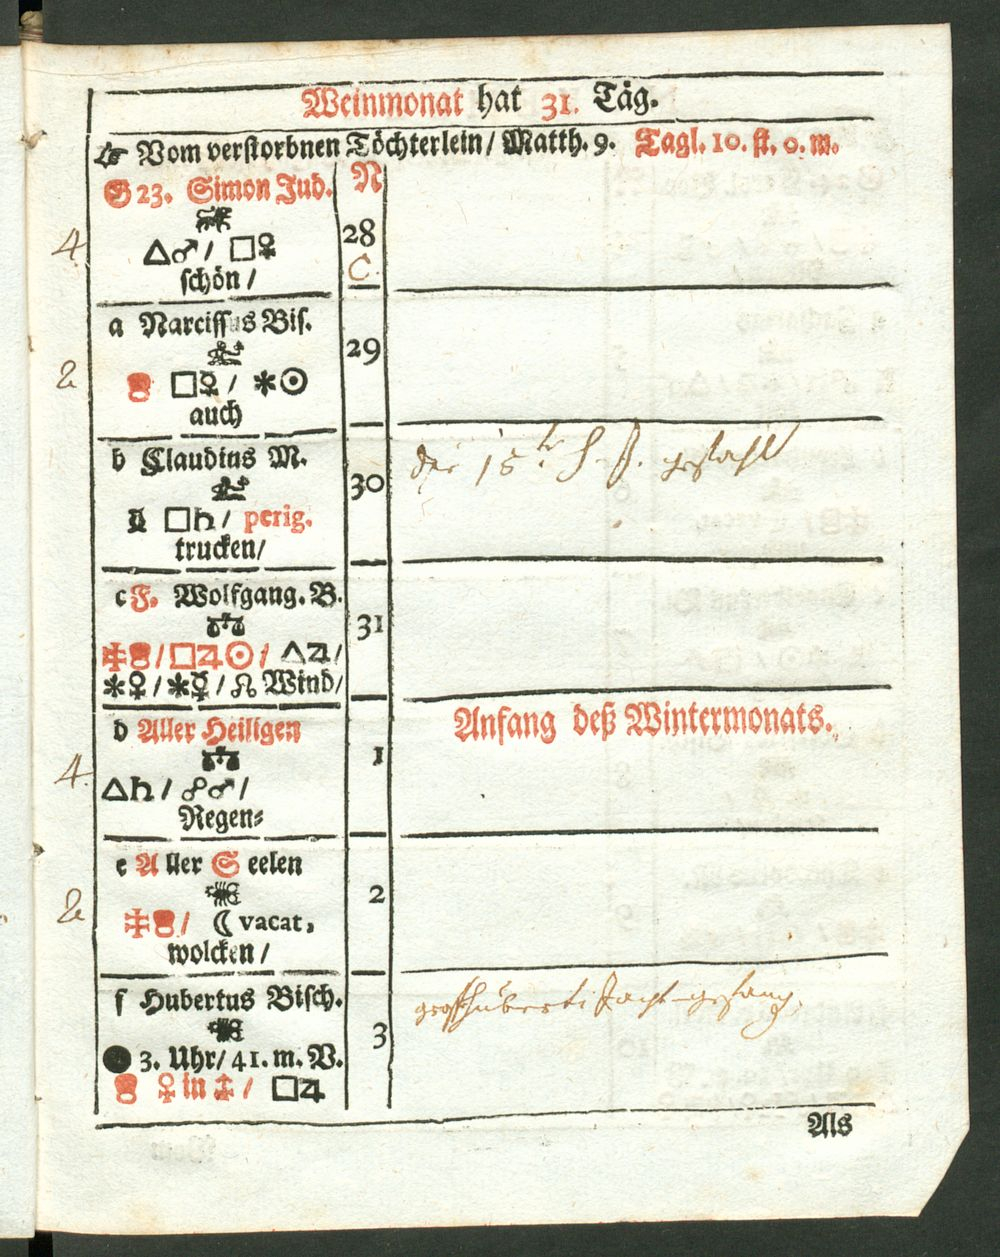 Weinmonat hat 31. Täg.
☞ Vom verstorbnen Töchterlein/ Matth. 9. Tagl. 10. st. 0. m.
G 23. Simon Jud. N
4. △♂/ □♀ 28
schön / C.
a Narcissus Bis.
29
2 □☿/ ✶☉
auch
b Claudius M.
der 15
30
□♄/ perig.
trucken/
c F. Wolfgang. B.
31
/□♃☉/ △♃/
✶♀/✶☿/☊ Wind/
d Aller Heiligen Anfang deß Wintermonats.
1
4. △♄/ ☍♂/
Regen⸗
e Aller Seelen
2
2 / ☾ vacat,
wolcken /
f Hubertus Bisch.
3
● 3. Uhr/ 41. m. V.
♀ in / □♃
Als